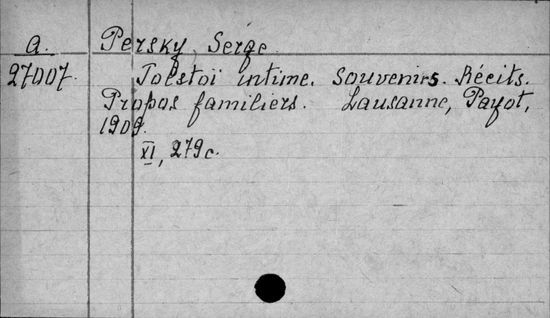 a. Persky, Serge.
27007. Tolstoï intime. Souvenirs. Récits.
Propos familiers. Lausanne, Payot,
1909.
XI, 279c.